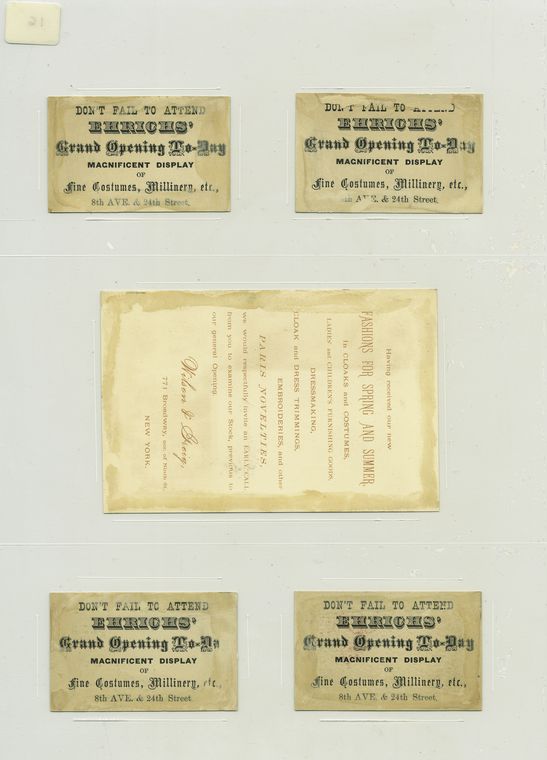 DON'T FAIL TO ATTEND
EHRICHS'
Grand Opening To-Day
MAGNIFICENT DISPLAY
OF
Fine Costumes, Millinery, etc.,
8th AVE. & 24th Street.
DON'T FAIL TO ATTEND
EHRICHS'
Grand Opening To-Day
MAGNIFICENT DISPLAY
OF
Fine Costumes, Millinery, etc.,
8th AVE. & 24th Street.
Having received our new
FASHIONS FOR SPRING AND SUMMER,
In CLOAKS and COSTUMES,
LADIES' and CHILDREN'S FURNISHING GOODS,
DRESSMAKING,
CLOAK and DRESS TRIMMINGS,
EMBROIDERIES, and other
PARIS NOVELTIES,
we would respectfully invite an EARLY CALL
from you to examine our Stock, previous to
our general Opening.
Wilson & Greig,
771 Broadway, cor. of Ninth St.
NEW YORK.
DON'T FAIL TO ATTEND
EHRICHS'
Grand Opening To-Da
MAGNIFICENT DISPLAY
OF
Fine Costumes, Millinery, etc.,
8th AVE. & 24th Street.
DON'T FAIL TO ATTEND
EHRICHS'
Grand Opening To-Day
MAGNIFICENT DISPLAY
OF
Fine Costumes, Millinery, etc.,
8th AVE. & 24th Street.